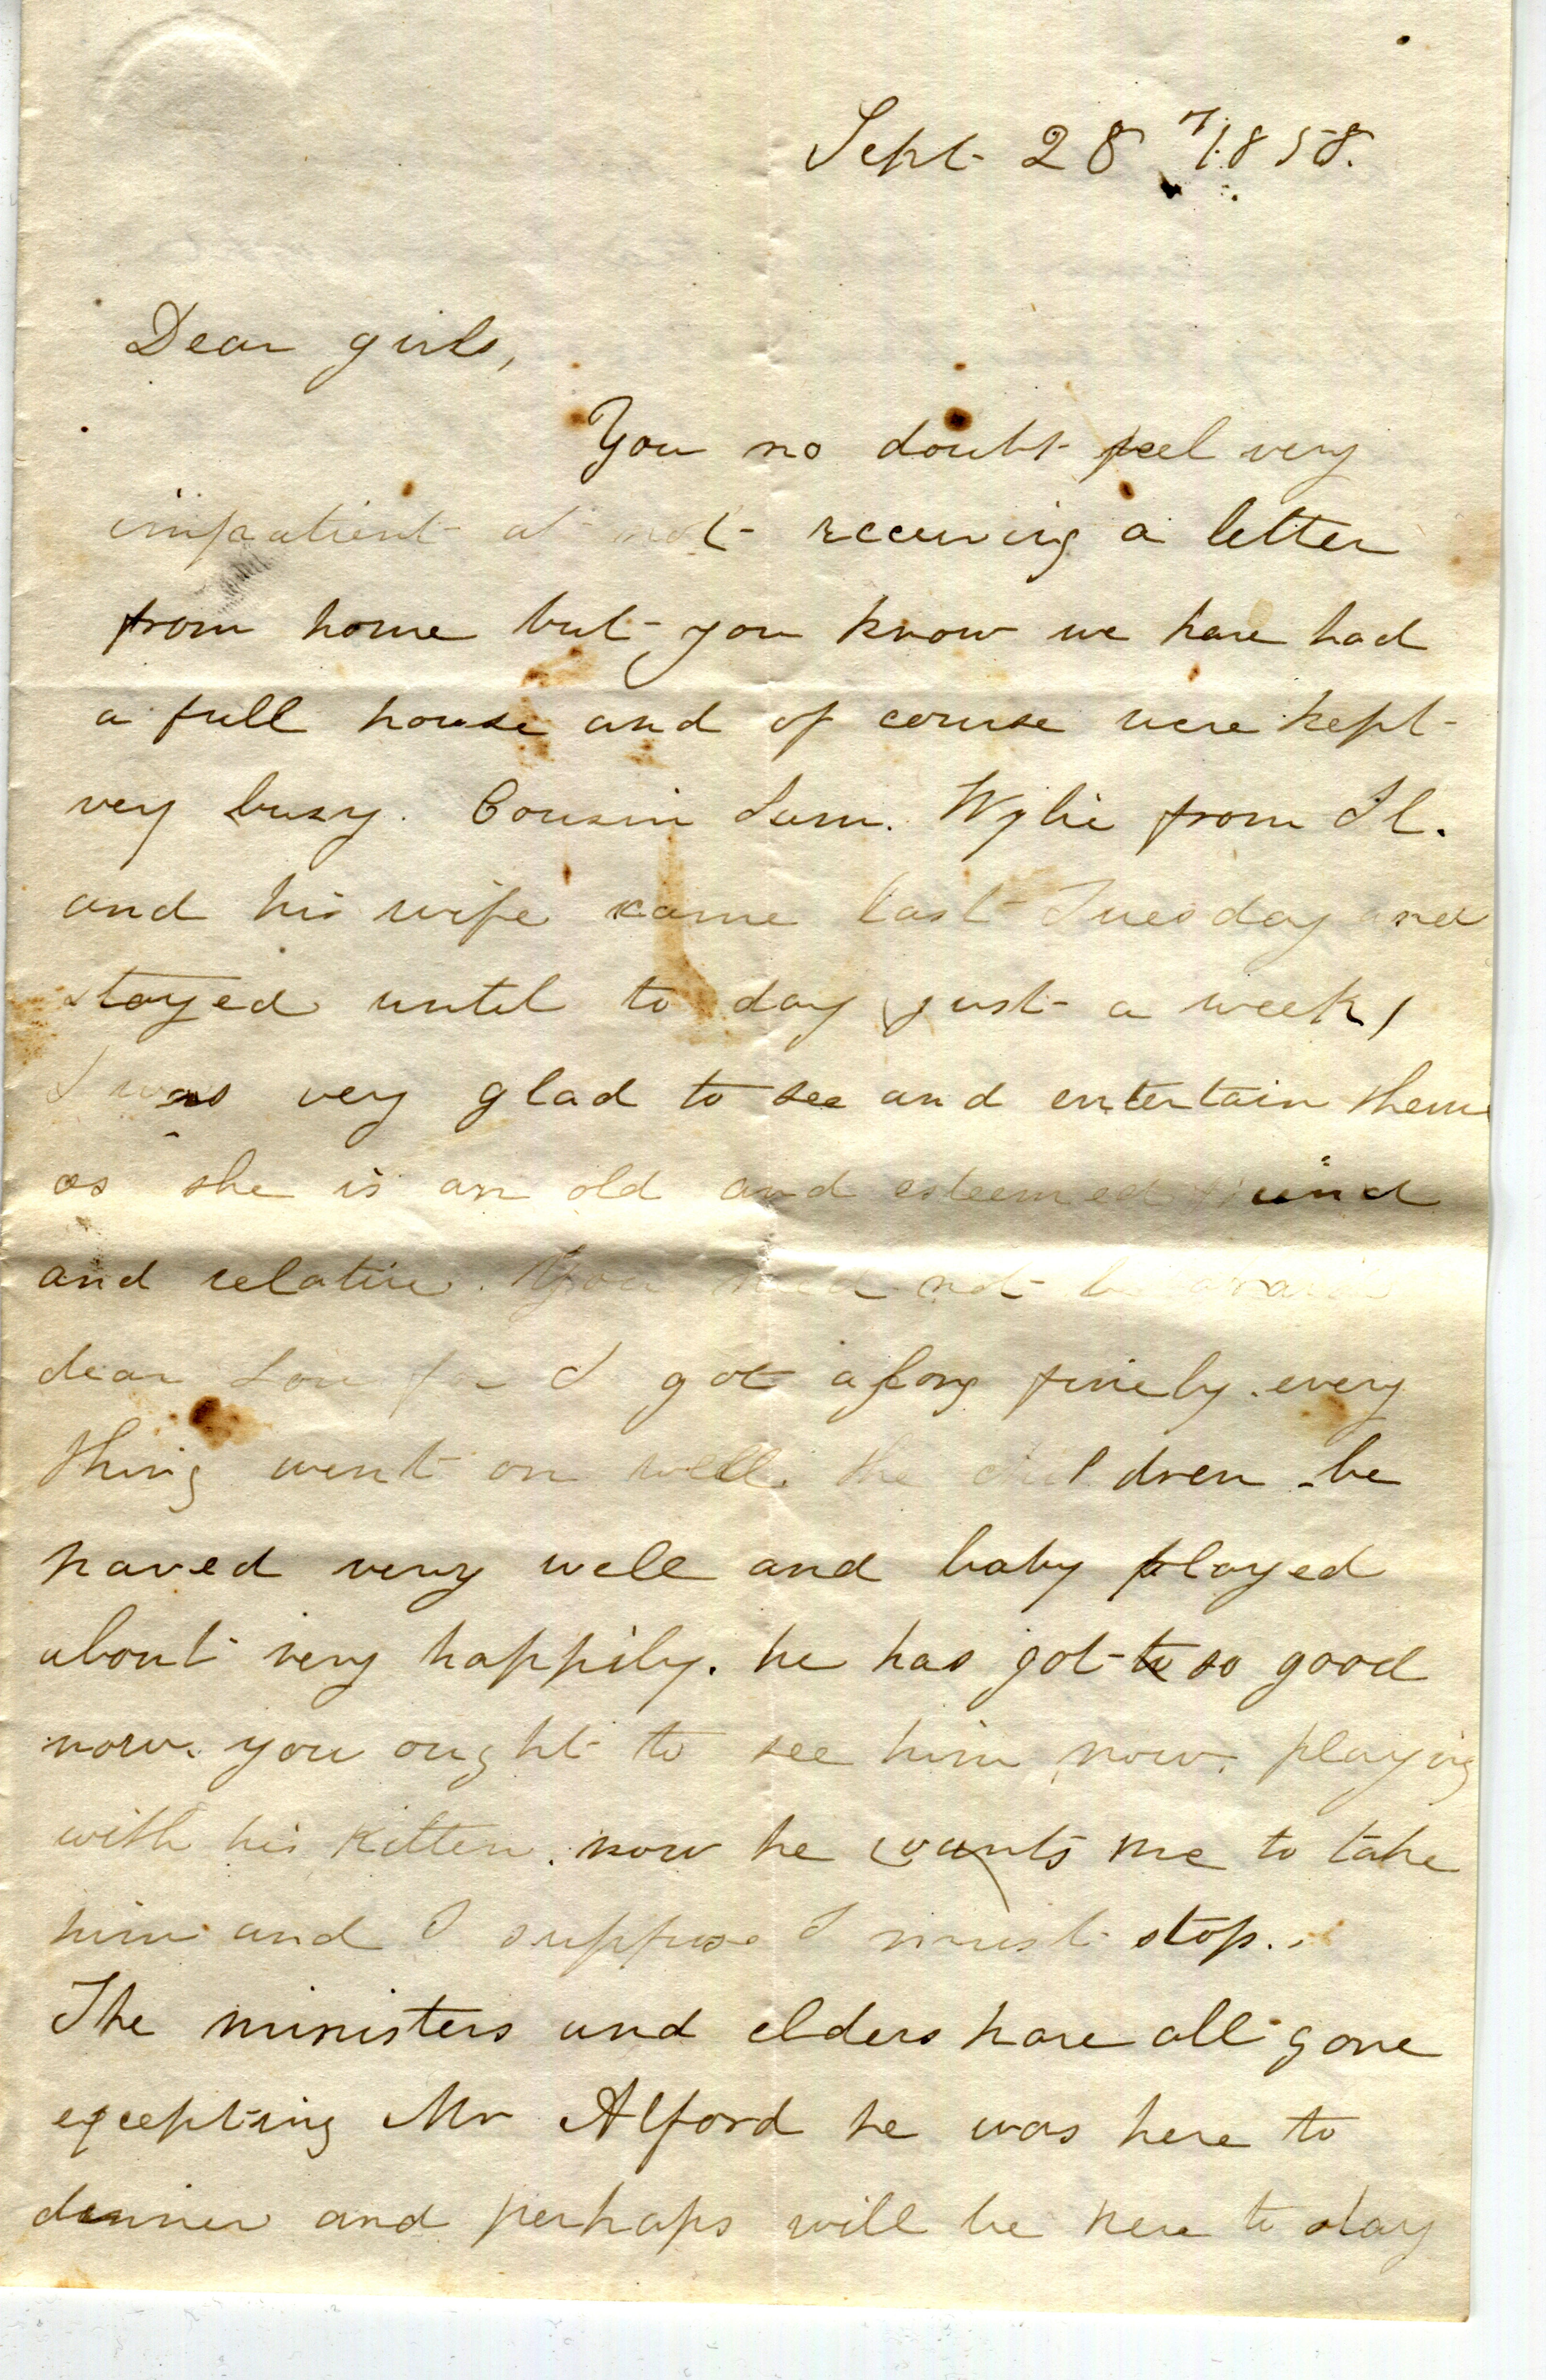 Sept 28 /1858.
Dear girls,
You no doubt feel very
impatient at not receiving a letter
from home but you know we have had
a full house and of course were kept
very busy. Cousin Sam. Wylie from Il.
and his wife came last Tuesday and
stayed until to day (just a week)
I was very glad to see and entertain them
as she is an old and esteemed friend
and relative. You need not be afraid
dear Lou for I got along finely. every
thing went on well. the children be
haved very well and baby played
about very happily. he has got to so good
now. you ought to see him now. playing
with his kitten. now he wants me to take
him and I suppose I must stop.
The ministers and elders have all gone
excepting Mr Alford he was here to
dinner and perhaps will be here to stay